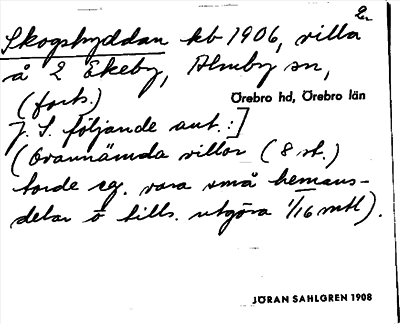 2.
Skogshyddan kb 1906, villa
å 2 Ekeby, Almby sn,
(forts.) Örebro hd, Örebro län
J. S. följande ant.:]
(Ovannämda villor (8 st.)
torde eg. vara små hemans-
delar o tills. utgöra 1/16 mtl).
JÖRAN SAHLGREN 1908